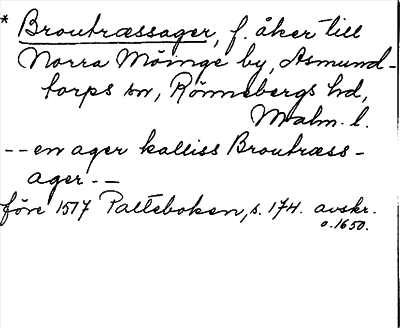 * Broutræssager, f. åker till
Norra Möinge by, Asmund-
torps sn, Rönnebergs hd,
Malm. l.
-- en ager kalliss Broutræss-
ager --
före 1517 Palteboken, s. 174. avskr.
o. 1650.